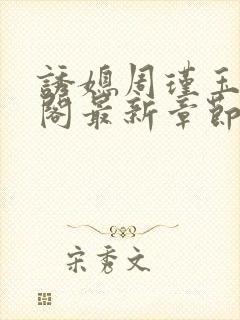 誘媳周瑾玉
閣最新章節
宋秀文